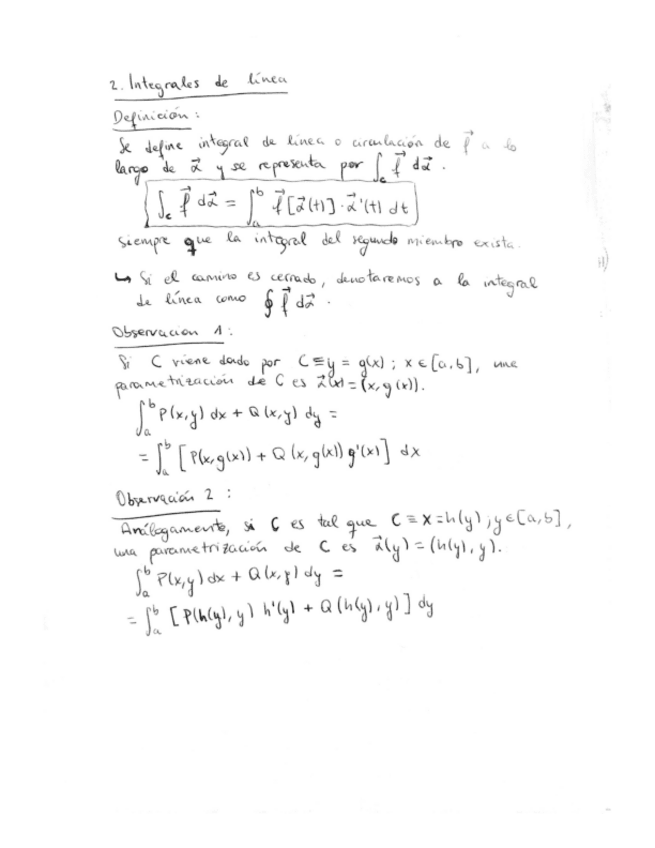 2. Integrales de línea
Definición:
Se define integral de línea o circulación de f⃗ a lo
largo de α⃗ y se representa por ∫_c f⃗ dα⃗.
∫_c f⃗ dα⃗ = ∫_a^b f⃗[α⃗(t)]·α⃗'(t) dt
siempre que la integral del segundo miembro exista.
↳ Si el camino es cerrado, denotaremos a la integral
de línea como ∮ f⃗ dα⃗.
Observación 1:
Si C viene dado por C ≡ y = g(x); x ∈ [a,b], una
parametrización de C es α⃗(x) = (x, g(x)).
∫_a^b P(x,y) dx + Q(x,y) dy =
= ∫_a^b [P(x,g(x)) + Q(x,g(x)) g'(x)] dx
Observación 2:
Análogamente, si C es tal que C ≡ x = h(y); y ∈ [a,b],
una parametrización de C es α⃗(y) = (h(y), y).
∫_a^b P(x,y) dx + Q(x,y) dy =
= ∫_a^b [P(h(y), y) h'(y) + Q(h(y), y)] dy